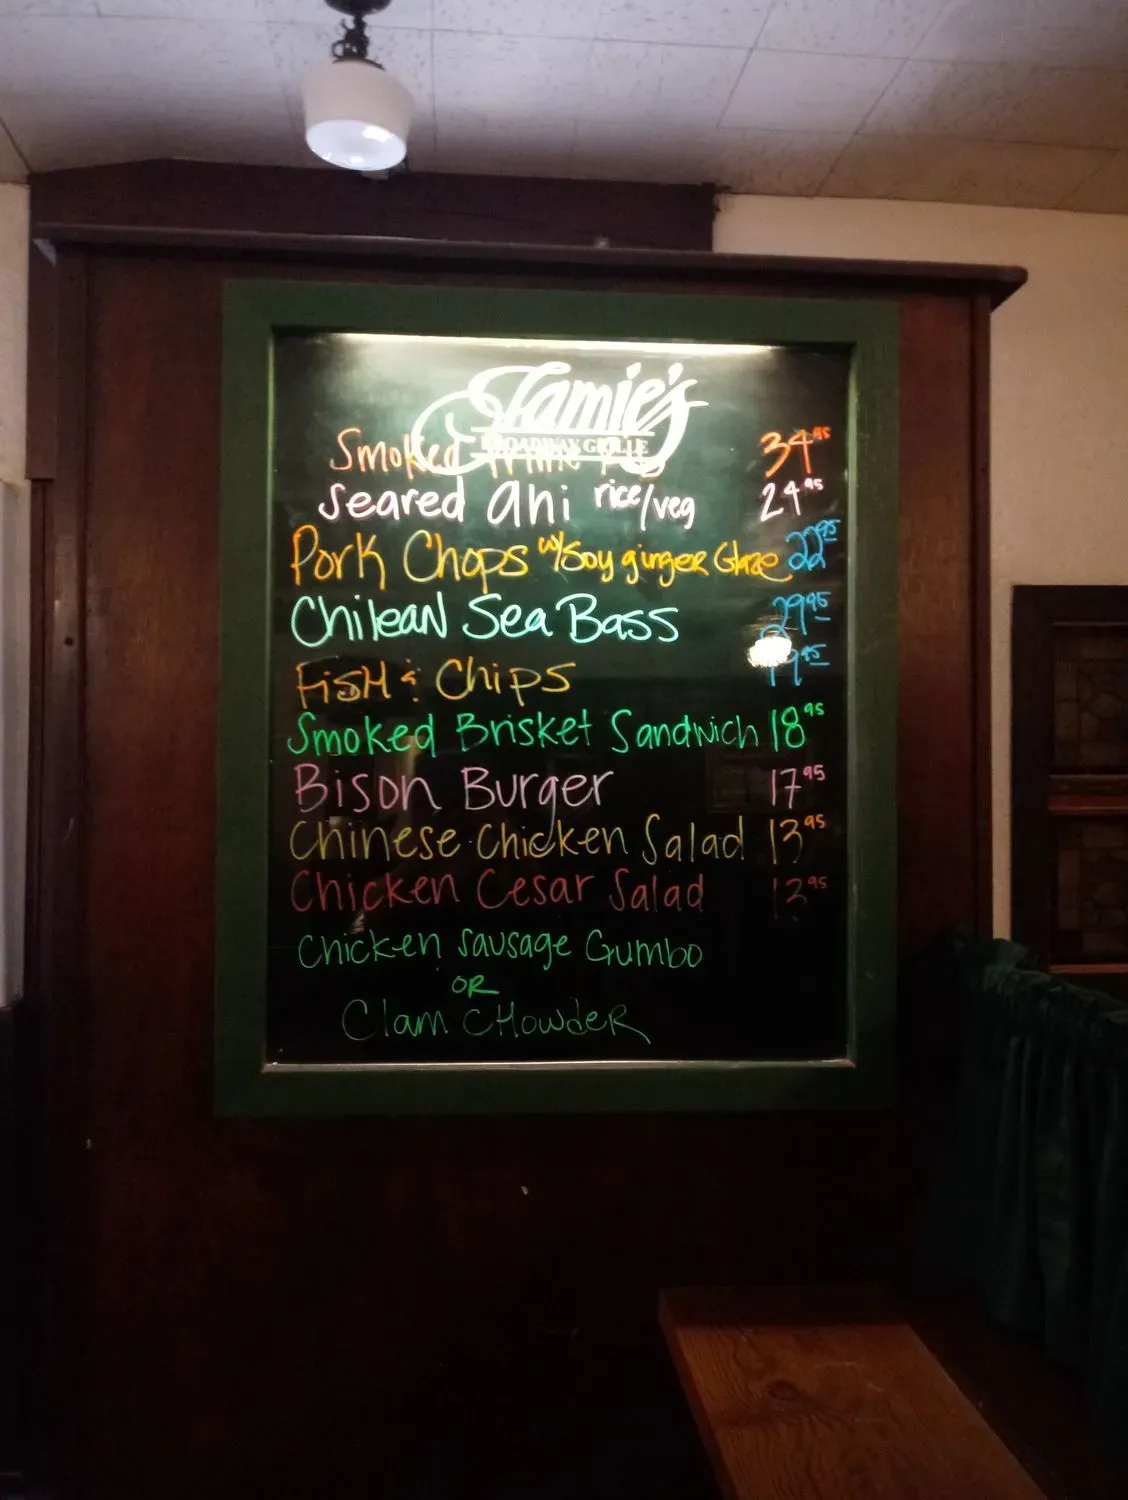 Jamie's
BROADWAY GRILLE
Smoked Prime Rib 34.95
Seared Ahi rice/veg 24.95
Pork Chops w/Soy ginger Glaze 22.95
Chilean Sea Bass 29.95
Fish & Chips 19.95
Smoked Brisket Sandwich 18.95
Bison Burger 17.95
Chinese Chicken Salad 13.95
Chicken Cesar Salad 13.95
Chicken Sausage Gumbo
OR
Clam CHowder